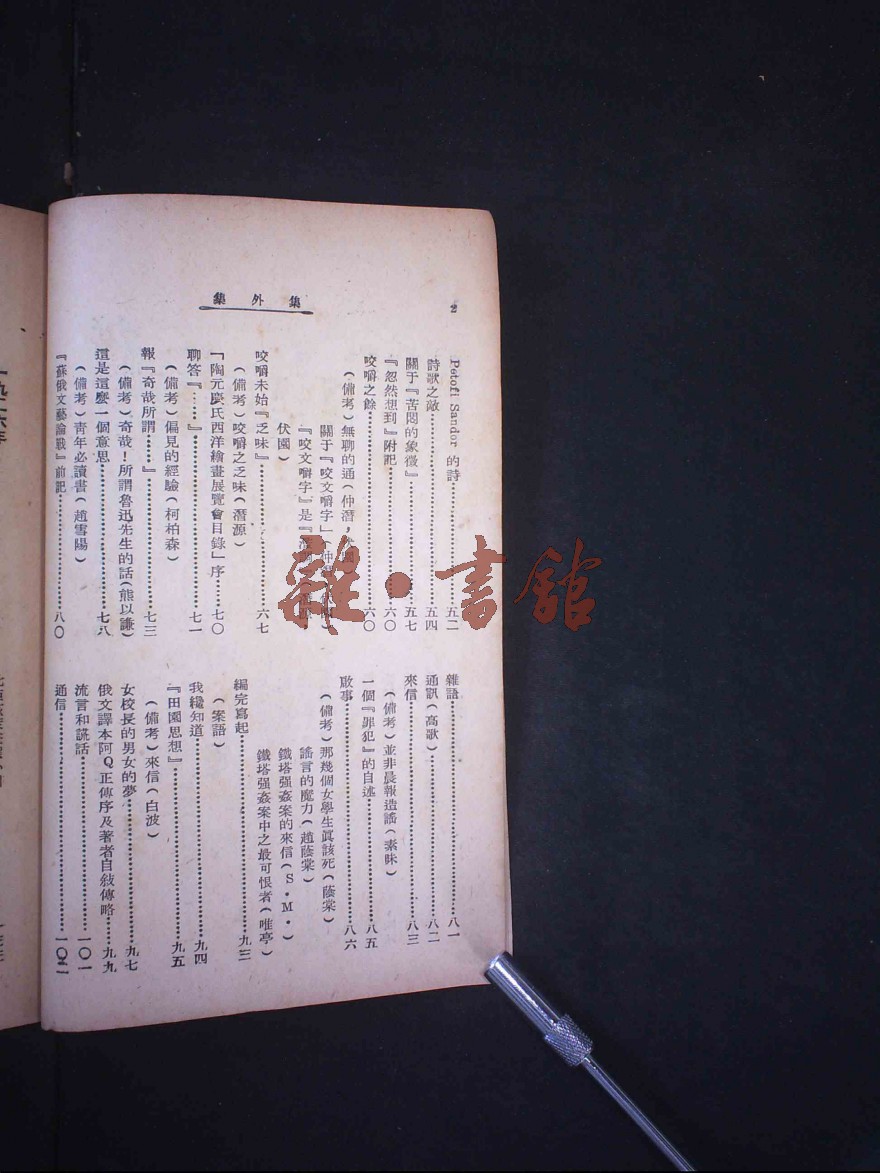 2
集外集
Petofi Sandor 的詩……五二
詩歌之敵……五四
關于『苦悶的象徵』……五七
『忽然想到』附記……六〇
咬嚼之餘……六〇
(備考)無聊的通(仲潛,
關于『咬文嚼字」
『咬文嚼字』是『
伏園)
咬嚼未始『乏味』……六七
(備考)咬嚼之乏味(潛源)
「陶元慶氏西洋繪畫展覽會目錄」序……七〇
聊答『……』……七一
(備考)偏見的經驗(柯柏森)
報『奇哉所謂……』……七三
(備考)奇哉!所謂魯迅先生的話(熊以謙)
這是這麼一個意思……七八
(備考)靑年必讀書(趙雪陽)
『蘇俄文藝論戰』前記……八〇
雜語……八一
通訊(高歌)……八二
來信……八三
(備考)並非晨報造謠(素昧)
一個『罪犯』的自述……八五
啟事……八六
(備考)那幾個女學生眞該死(蔭棠)
謠言的魔力(趙蔭棠)
鐵塔强姦案的來信(S·M·)
鐵塔强姦案中之最可恨者(唯亭)
編完寫起……九三
(案語)
我纔知道……九四
『田園思想』……九五
(備考)來信(白波)
女校長的男女的夢……九七
俄文譯本阿Q正傳序及著者自敍傳略……九九
流言和謊話……一〇一
通信……一〇二
雜·書館